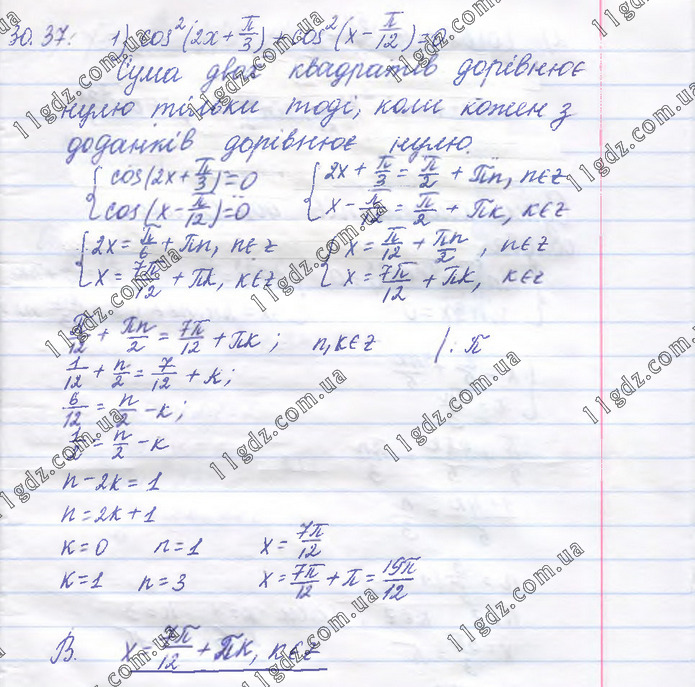 30.37. 1) cos²(2x + π/3) + cos²(x - π/12) = 0
Сума двох квадратів дорівнює
нулю тільки тоді, коли кожен з
доданків дорівнює нулю.
{ cos(2x + π/3) = 0 { 2x + π/3 = π/2 + πn, n∈z
{ cos(x - π/12) = 0 { x - π/12 = π/2 + πk, k∈z
{ 2x = π/6 + πn, n∈z { x = π/12 + πn/2, n∈z
{ x = 7π/12 + πk, k∈z { x = 7π/12 + πk, k∈z
π/12 + πn/2 = 7π/12 + πk; n,k∈z /: π
1/12 + n/2 = 7/12 + k;
6/12 = n/2 - k;
1/2 = n/2 - k
n - 2k = 1
n = 2k + 1
k = 0 n = 1 x = 7π/12
k = 1 n = 3 x = 7π/12 + π = 19π/12
В. x = 7π/12 + πk, k∈z
11gdz.com.ua